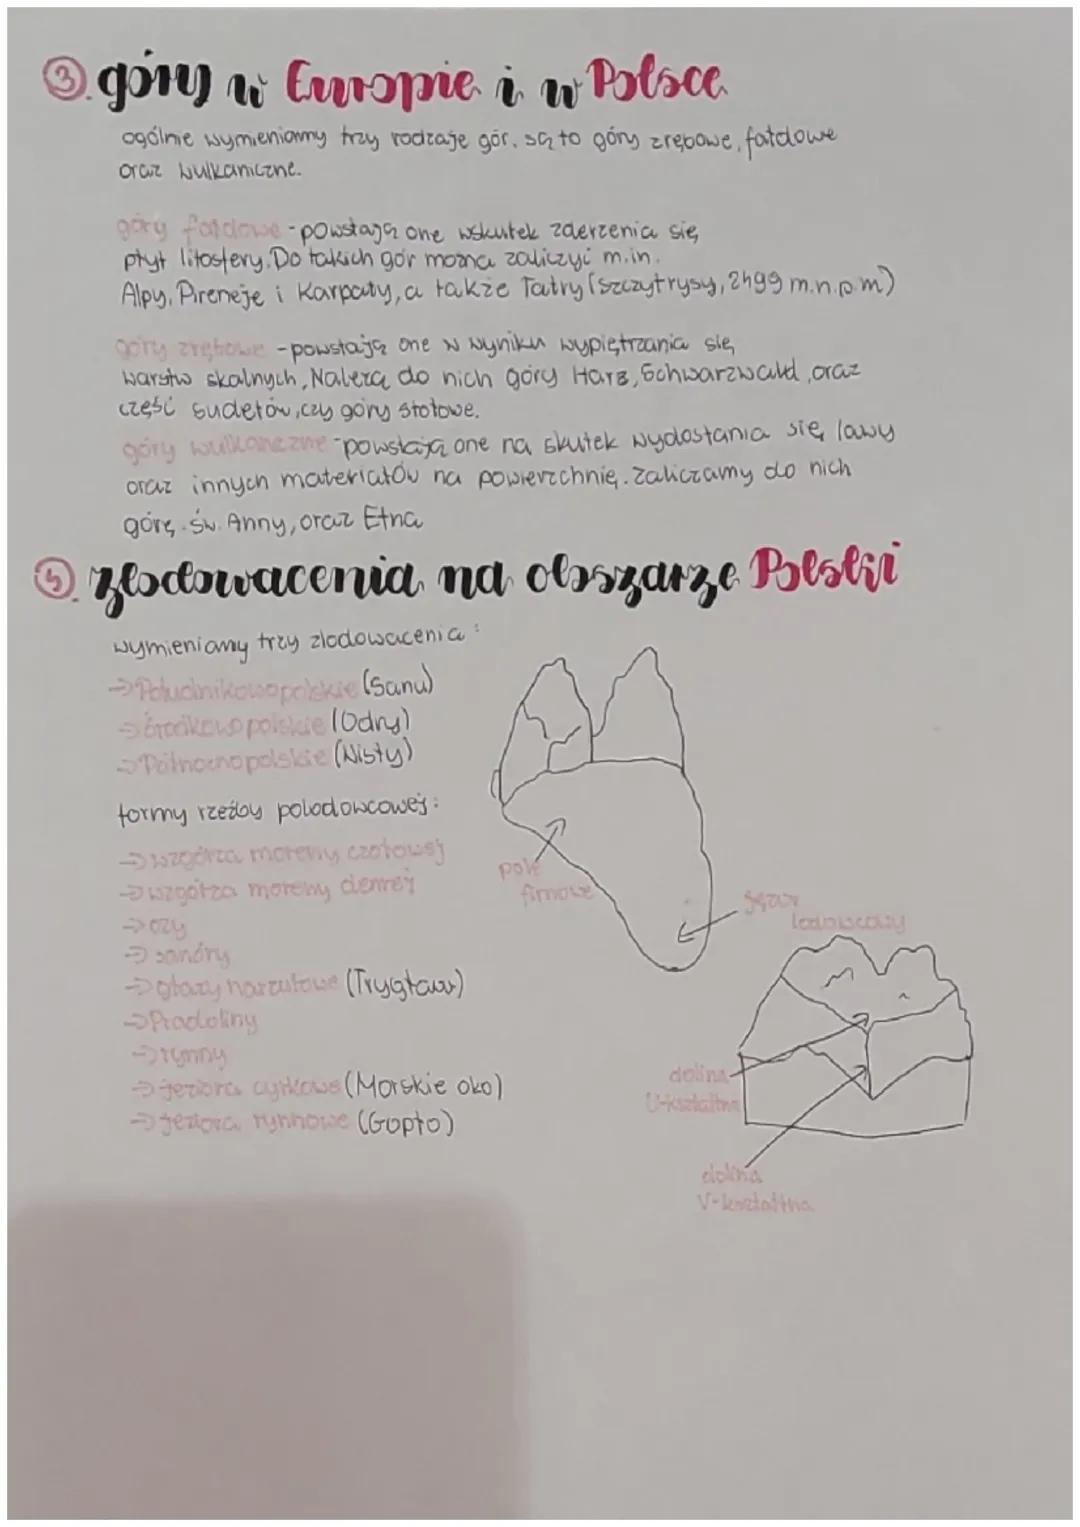 ③. góry w Europie i w Polsce
ogólnie wymieniamy trzy rodzaje gór, są to góry zrębowe, fałdowe
oraz wulkaniczne.
góry fałdowe - powstają one wskutek zderzenia się
płyt litosfery. Do takich gór można zaliczyć m.in.
Alpy, Pireneje i Karpaty, a także Tatry (szczyt rysy, 2499 m.n.p.m)
góry zrębowe - powstają one w wyniku wypiętrzania się
warstw skalnych, Należą do nich góry Harz, Schwarzwald, oraz
część sudetów, czy góry stołowe.
góry wulkaniczne - powstają one na skutek wydostania się lawy
oraz innych materiałów na powierzchnię. zaliczamy do nich
górę. św. Anny, oraz Etna
zlodowacenia na obszarze Polski
wymieniamy trzy zlodowacenia:
→ Południkowopolskie (Sanu)
→ środkowopolskie (Odry)
→ Północnopolskie (Wisły)
formy rzeźby polodowcowej:
→ wzgórza moreny czołowej
→ wzgórza moreny dennej
→ ozy
→ sandry
→ głazy narzutowe (Trygław)
→ Pradoliny
→ rynny
→ jeziora cyrkowe (Morskie oko)
→ jeziora rynnowe (Gopło)
pole
firnowe
jęzor
lodowcowy
dolina
U-kształtna
dolina
V-kształtna